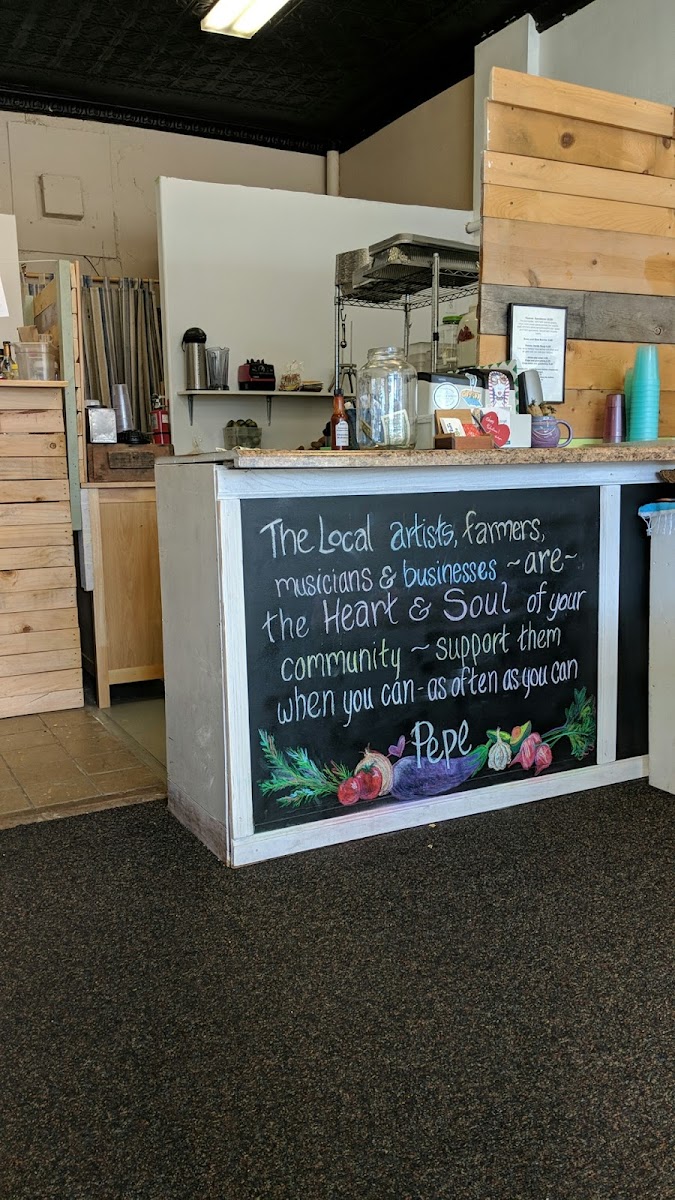 The Local artists, farmers,
musicians & businesses ~are~
the Heart & Soul of your
community ~ support them
when you can - as often as you can
Pepe